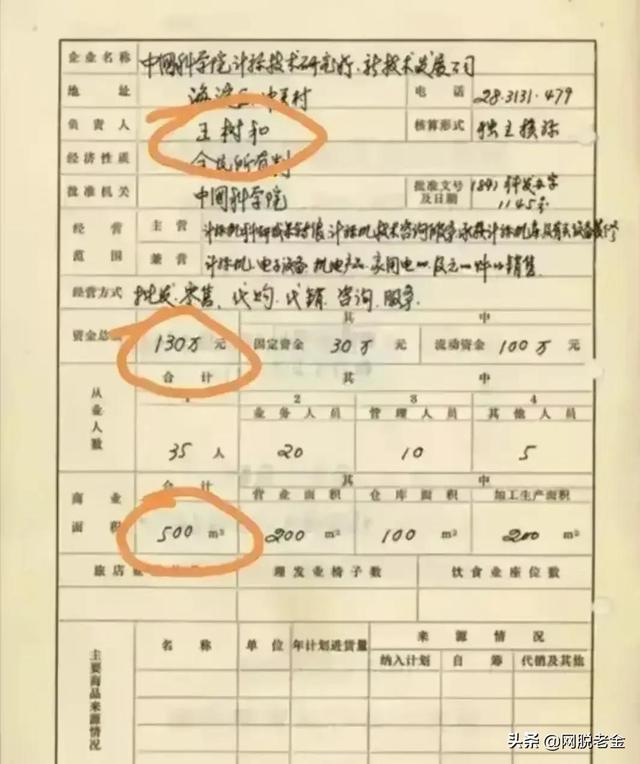 企业名称 中国科学院计算技术研究所新技术发展公司
地址 海淀区中关村 电话 28.3131.479
负责人 王树和 核算形式 独立核算
经济性质 全民所有制
批准机关 中国科学院 批准文号及日期 科发 字 1145号
经营范围 主营 计算机科研成果 计算机技术咨询服务 承接计算机 及有关设备
兼营 计算机、电子设备、机电产品、家用电 及元 件的销售
经营方式 批发、零售、代购、代销、咨询、服务
资金总额 130万元 其中
固定资金 30万元 流动资金 100万元
从业人数 合计 其中
1 2 3 4
业务人员 管理人员 其他人员
35人 20 10 5
商业面积 合计 其中
营业面积 仓库面积 加工生产面积
500 m² 200 m² 100 m² 200 m²
旅店 理发业椅子数 饮食业座位数
主要商品来源情况 名称 单位 年计划进货量 来源情况
纳入计划 自筹 代销及其他
头条 @网脱老金